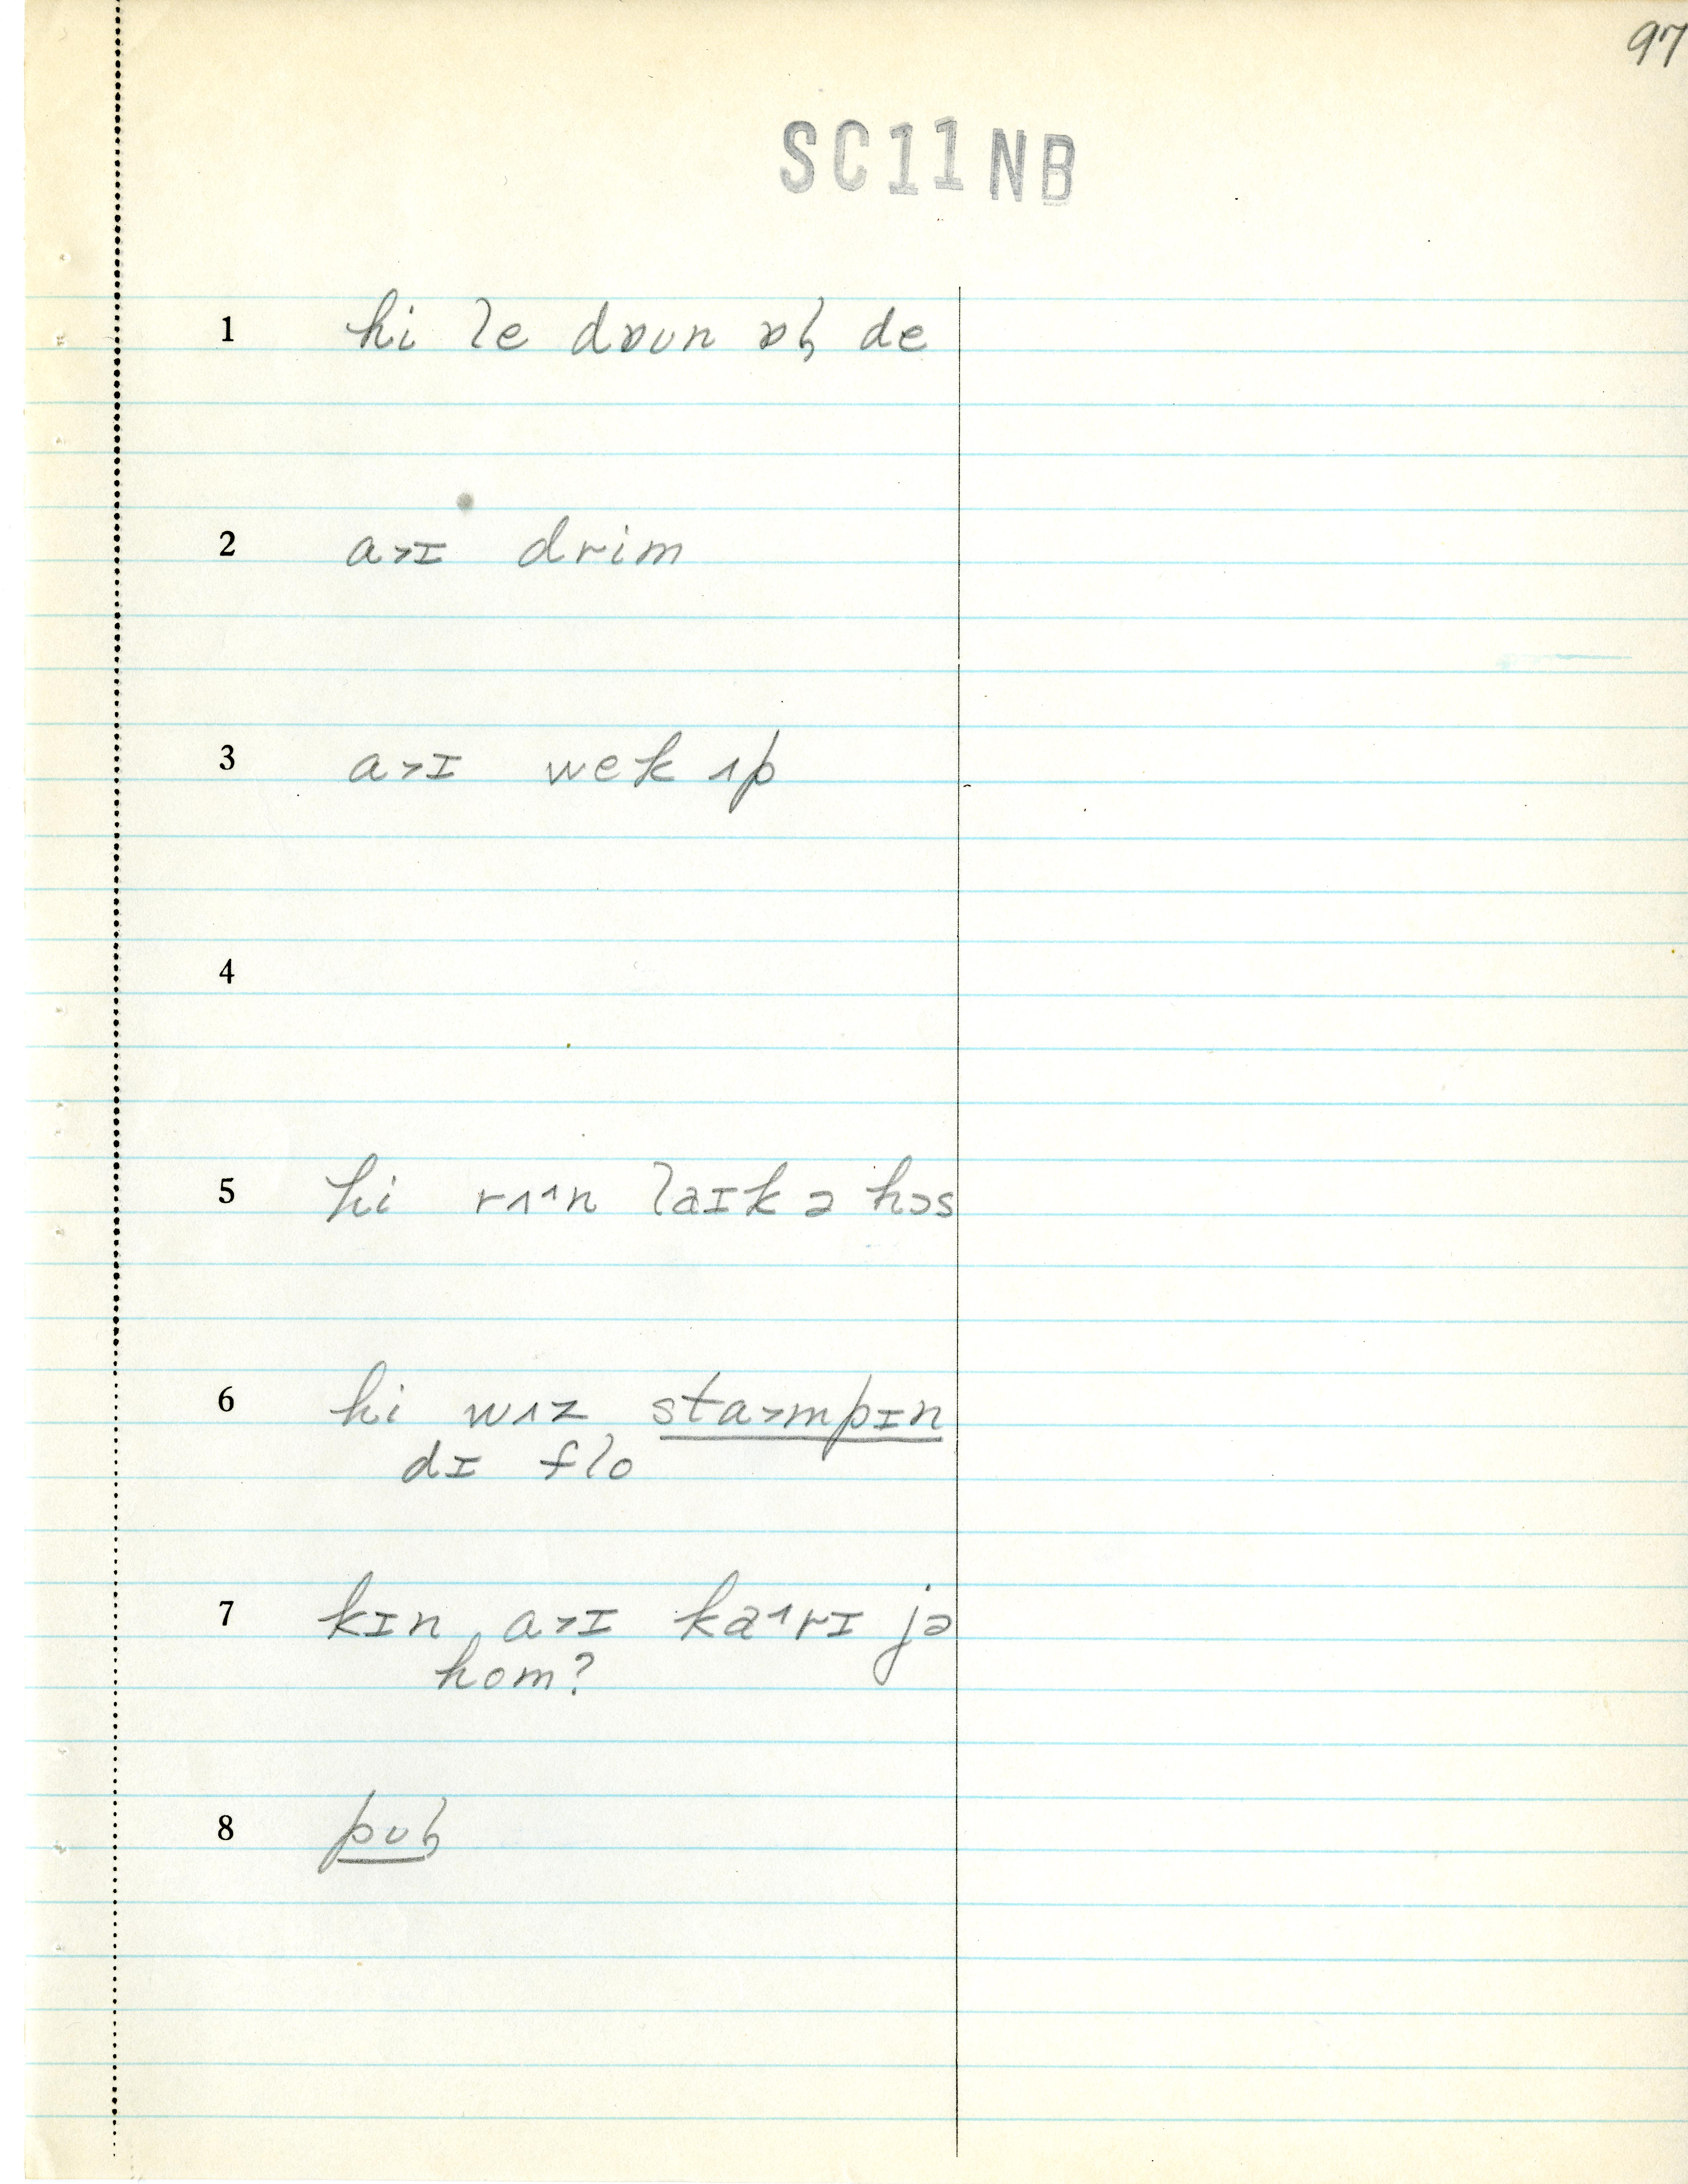 97
SC11NB
1 hi le dɒʊn ɒɮ de
2 a˃ɪ drim
3 a˃ɪ wek ʌp
4
5 hi rʌ˄n laɪk ə hɔs
6 hi wʌz sta˃mpɪn
dɪ flo
7 kɪn a˃ɪ ka˄rɪ jə
hom?
8